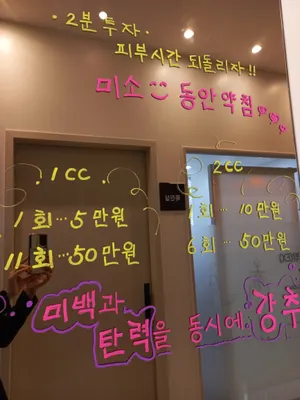 · 2분 투자 ·
피부시간 되돌리자!!
미소 동안약침
1CC
1회 … 5만원
11회 … 50만원
2CC
1회 … 10만원
6회 … 50만원
미백과
탄력을 동시에 강추